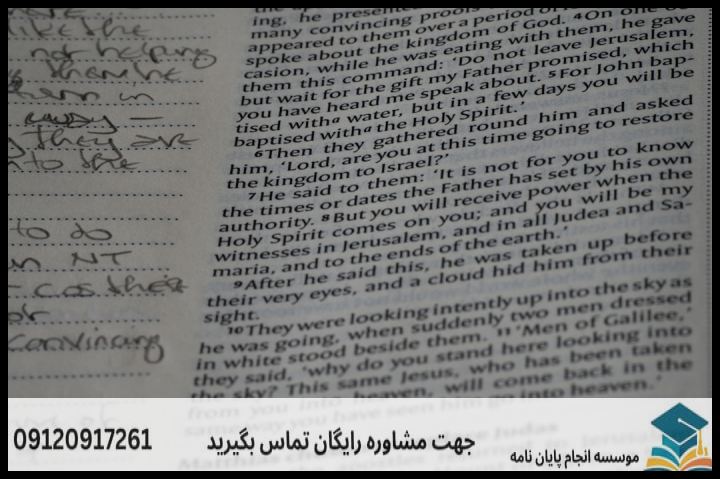 like the
not helping
in
They are
to the
to do
in NT
convincing
ing, he presented
many convincing proofs
appeared to them over a period of
spoke about the kingdom of God. ⁴On one oc-
casion, while he was eating with them, he gave
them this command: 'Do not leave Jerusalem,
but wait for the gift my Father promised, which
you have heard me speak about. ⁵For John bap-
tised withᵃ water, but in a few days you will be
baptised withᵃ the Holy Spirit.'
⁶Then they gathered round him and asked
him, 'Lord, are you at this time going to restore
the kingdom to Israel?'
⁷He said to them: 'It is not for you to know
the times or dates the Father has set by his own
authority. ⁸But you will receive power when the
Holy Spirit comes on you; and you will be my
witnesses in Jerusalem, and in all Judea and Sa-
maria, and to the ends of the earth.'
⁹After he said this, he was taken up before
their very eyes, and a cloud hid him from their
sight.
¹⁰They were looking intently up into the sky as
he was going, when suddenly two men dressed
in white stood beside them. ¹¹'Men of Galilee,'
they said, 'why do you stand here looking into
the sky? This same Jesus, who has been taken
from you into heaven, will come back in the
same way you have seen him go into heaven.'
جهت مشاوره رایگان تماس بگیرید
09120917261
موسسه انجام پایان نامه